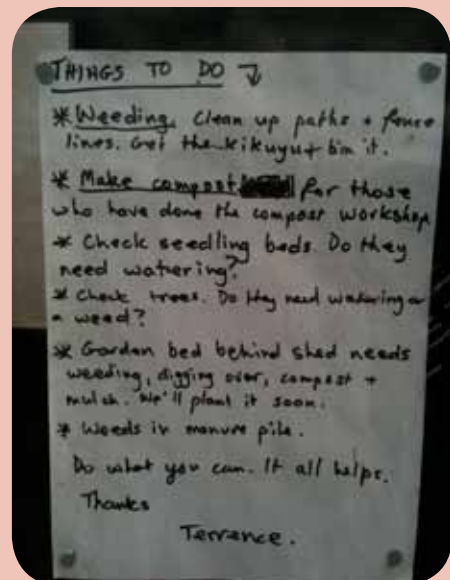 THINGS TO DO
* Weeding. Clean up paths + fence
lines. Get the kikuyu + bin it.
* Make compost for those
who have done the compost workshop
* Check seedling beds. Do they
need watering?
* Check trees. Do they need watering or
a weed?
* Garden bed behind shed needs
weeding, digging over, compost +
mulch. We'll plant it soon.
* Weeds in manure pile.
Do what you can. It all helps.
Thanks
Terrence.